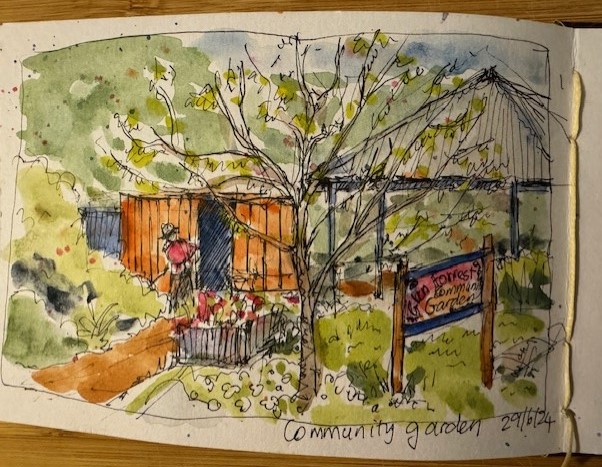 Glen Forrest
Community
Garden
Community garden 29/6/24